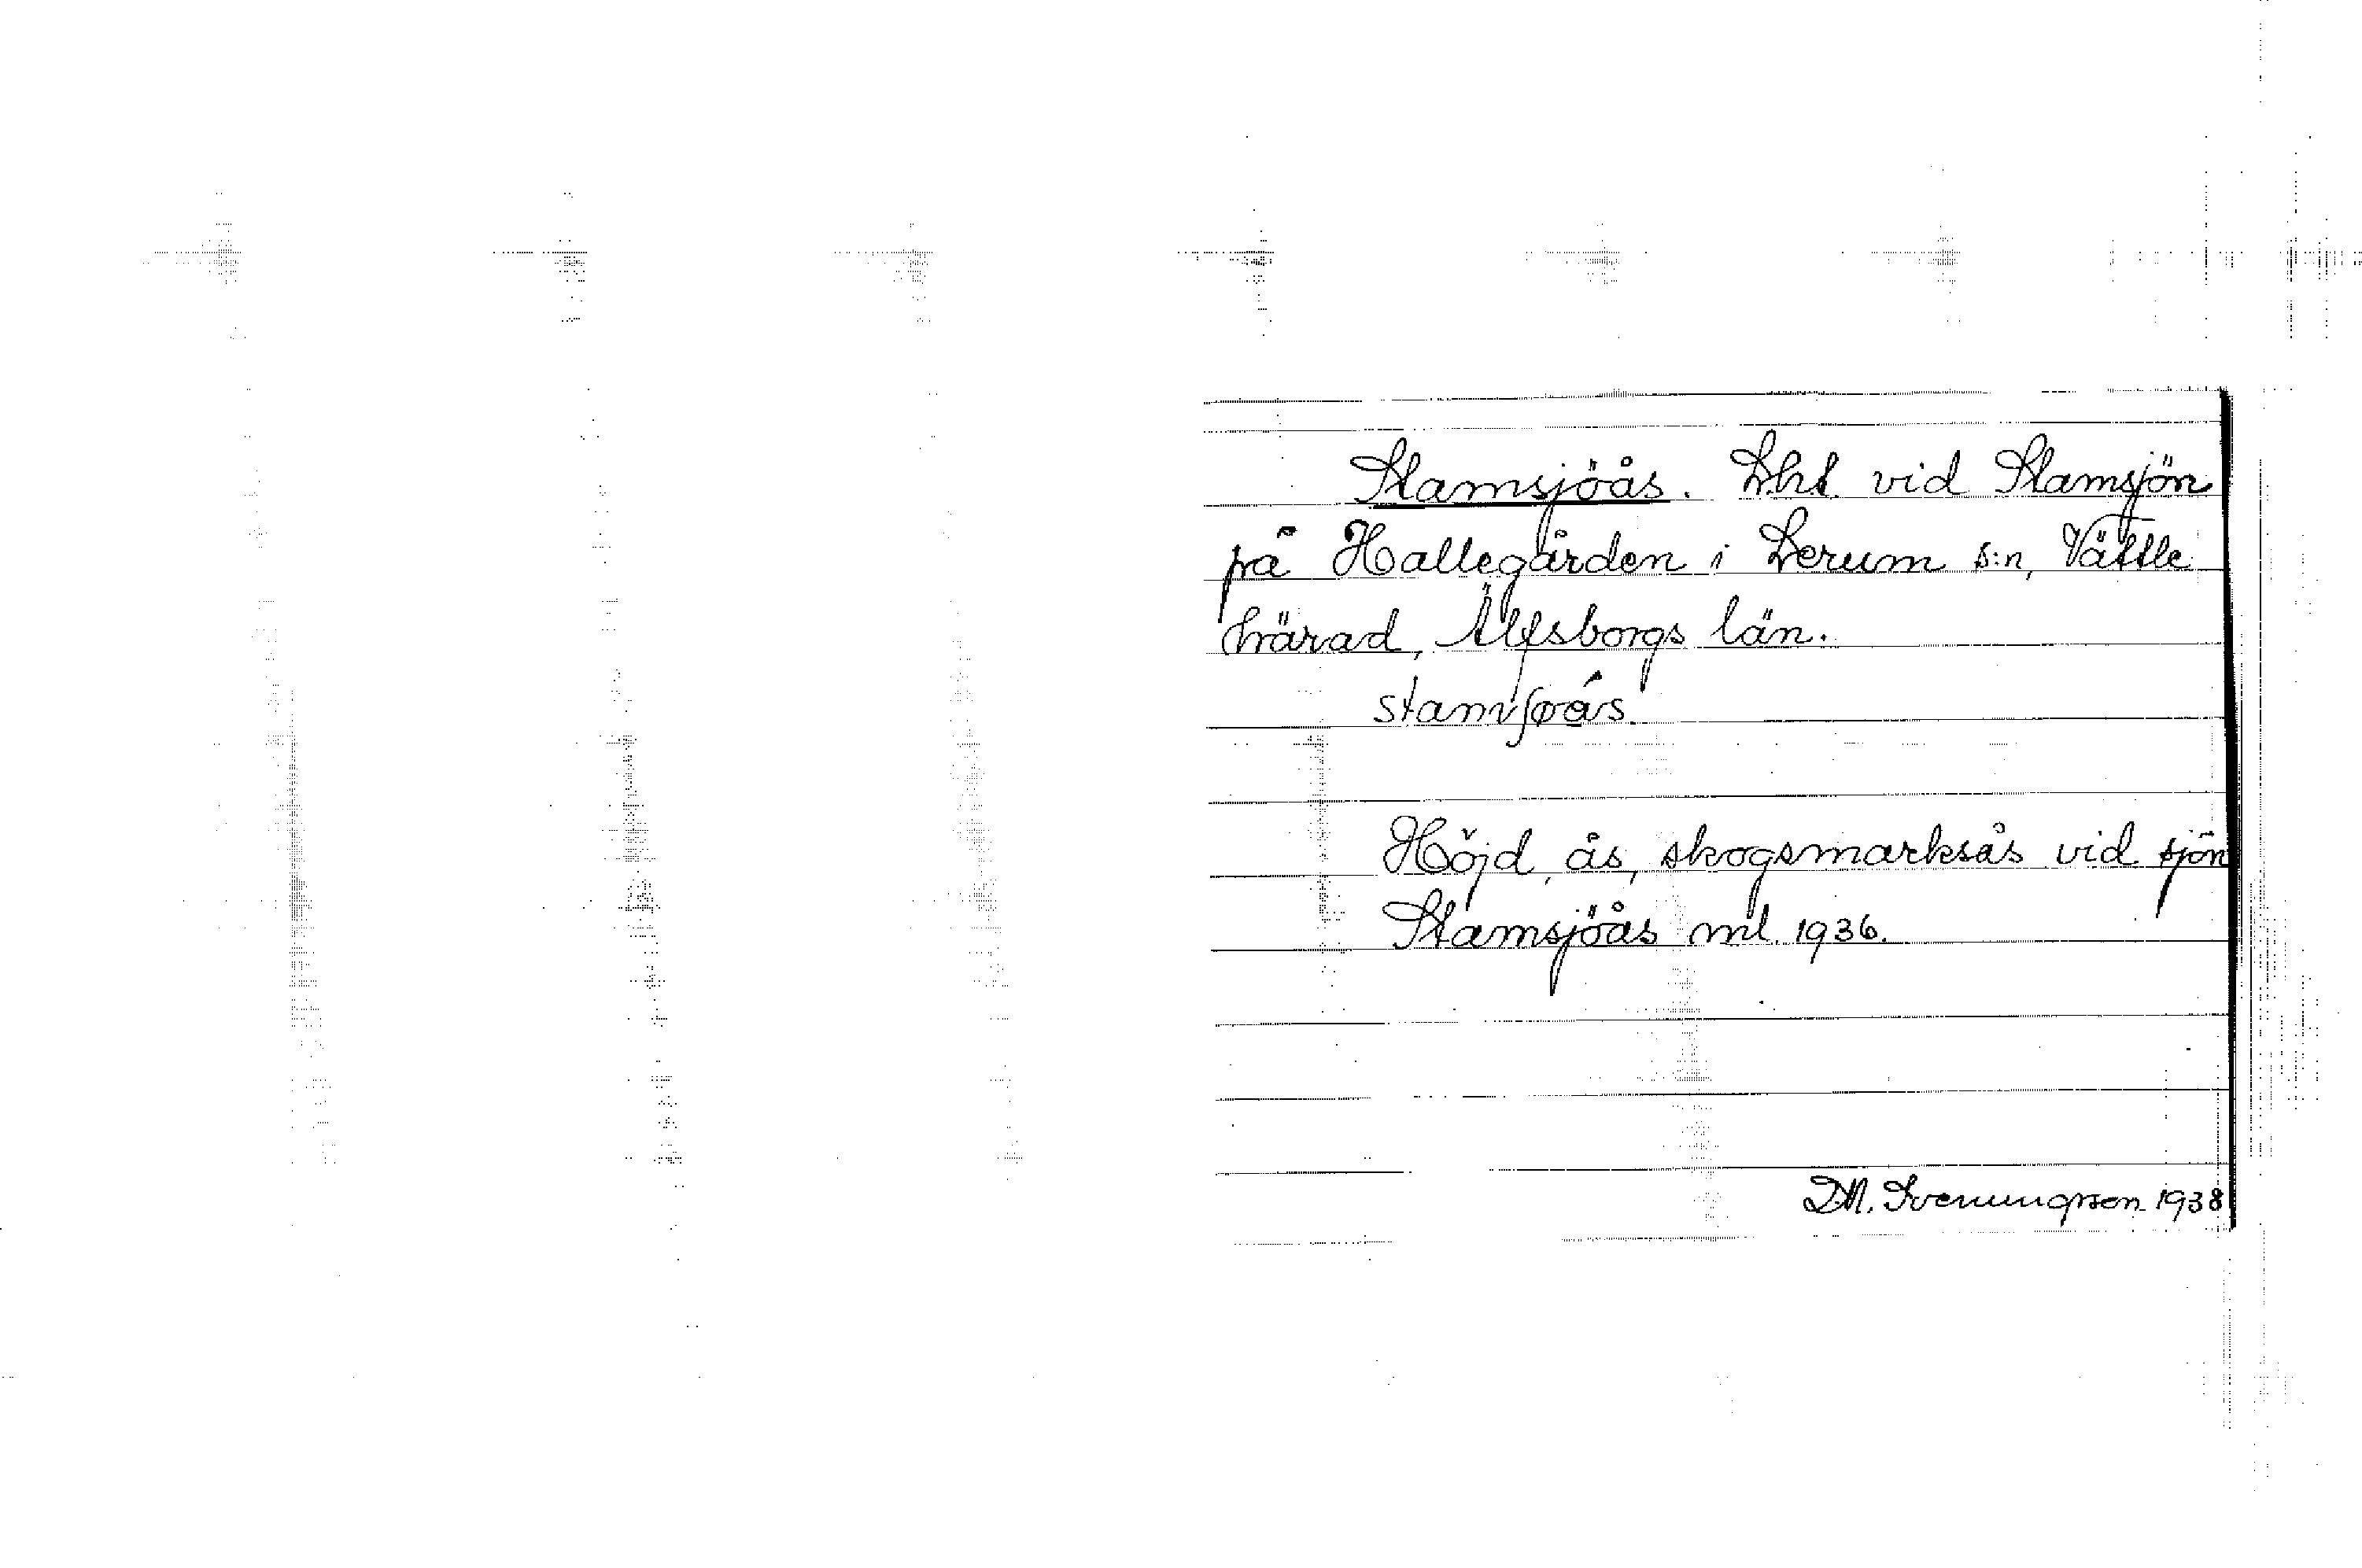 Stamsjöås. Lht vid Stamsjön
på Hallegården i Lerum s:n, Vättle
härad, Älfsborgs län.
Höjd, ås, skogsmarksås vid sjön
Stamsjöås ml. 1936.
D.M. Svenungsson 1938